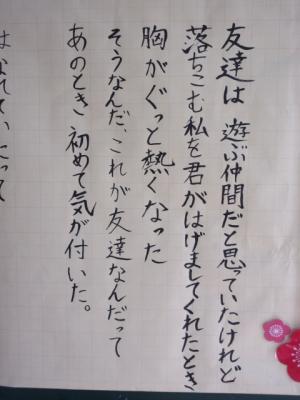 友達は 遊ぶ仲間だと思っていたけれど
落ちこむ私を君がはげましてくれたとき
胸がぐっと熱くなった
そうなんだ、これが友達なんだって
あのとき 初めて気が付いた。
はなれていたって